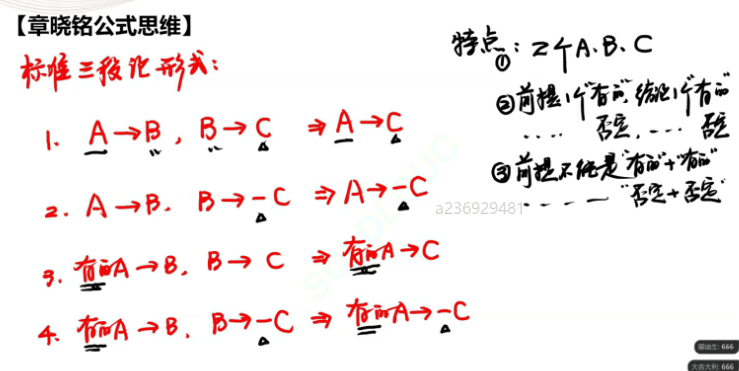 【章晓铭公式思维】
标准三段论形式：
1. A→B, B→C ⇒ A→C
2. A→B. B→-C ⇒ A→-C
3. 有的A→B, B→C ⇒ 有的A→C
4. 有的A→B. B→-C ⇒ 有的A→-C
特点：①2个A.B.C
②前提1个"有的",结论1个"有的"
.... 否定, .... 否定
③前提不能是"有的"+"有的"
.... "否定+否定"
a236929481
: 666
大吉大利: 666